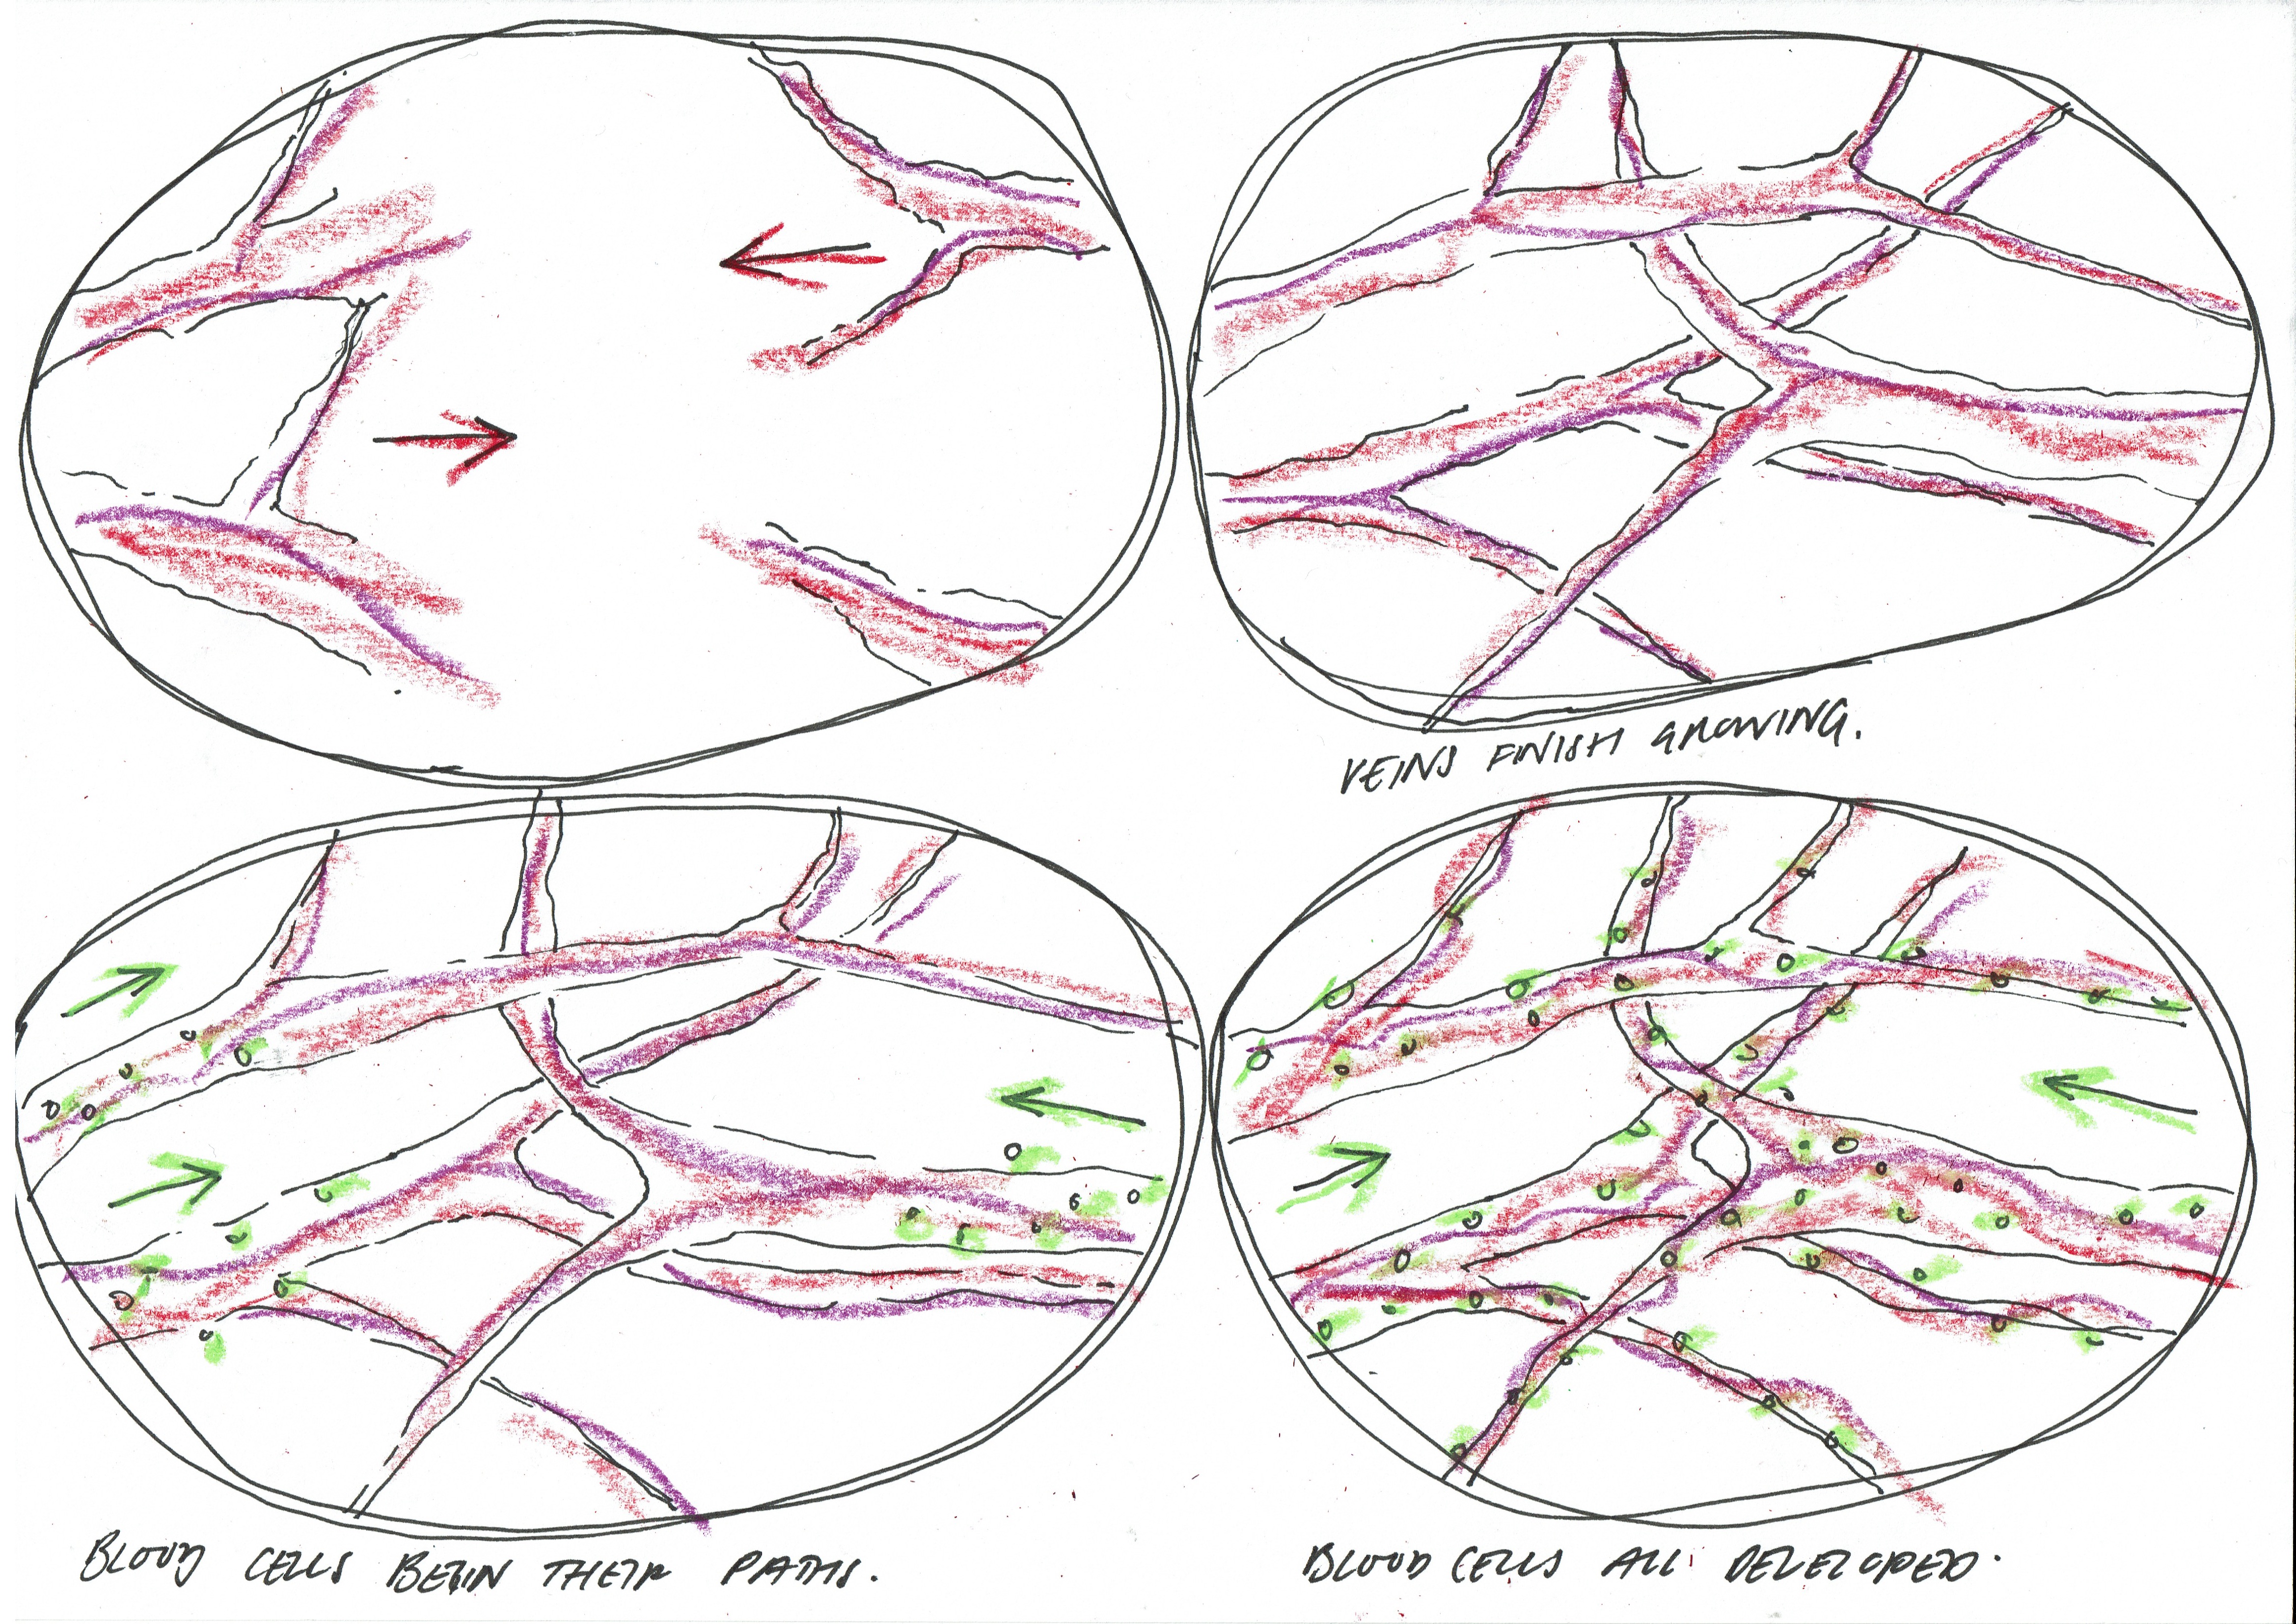 VEINS FINISH GROWING.
BLOOD CELLS BEGIN THEIR PATHS.
BLOOD CELLS ALL DEVELOPED.